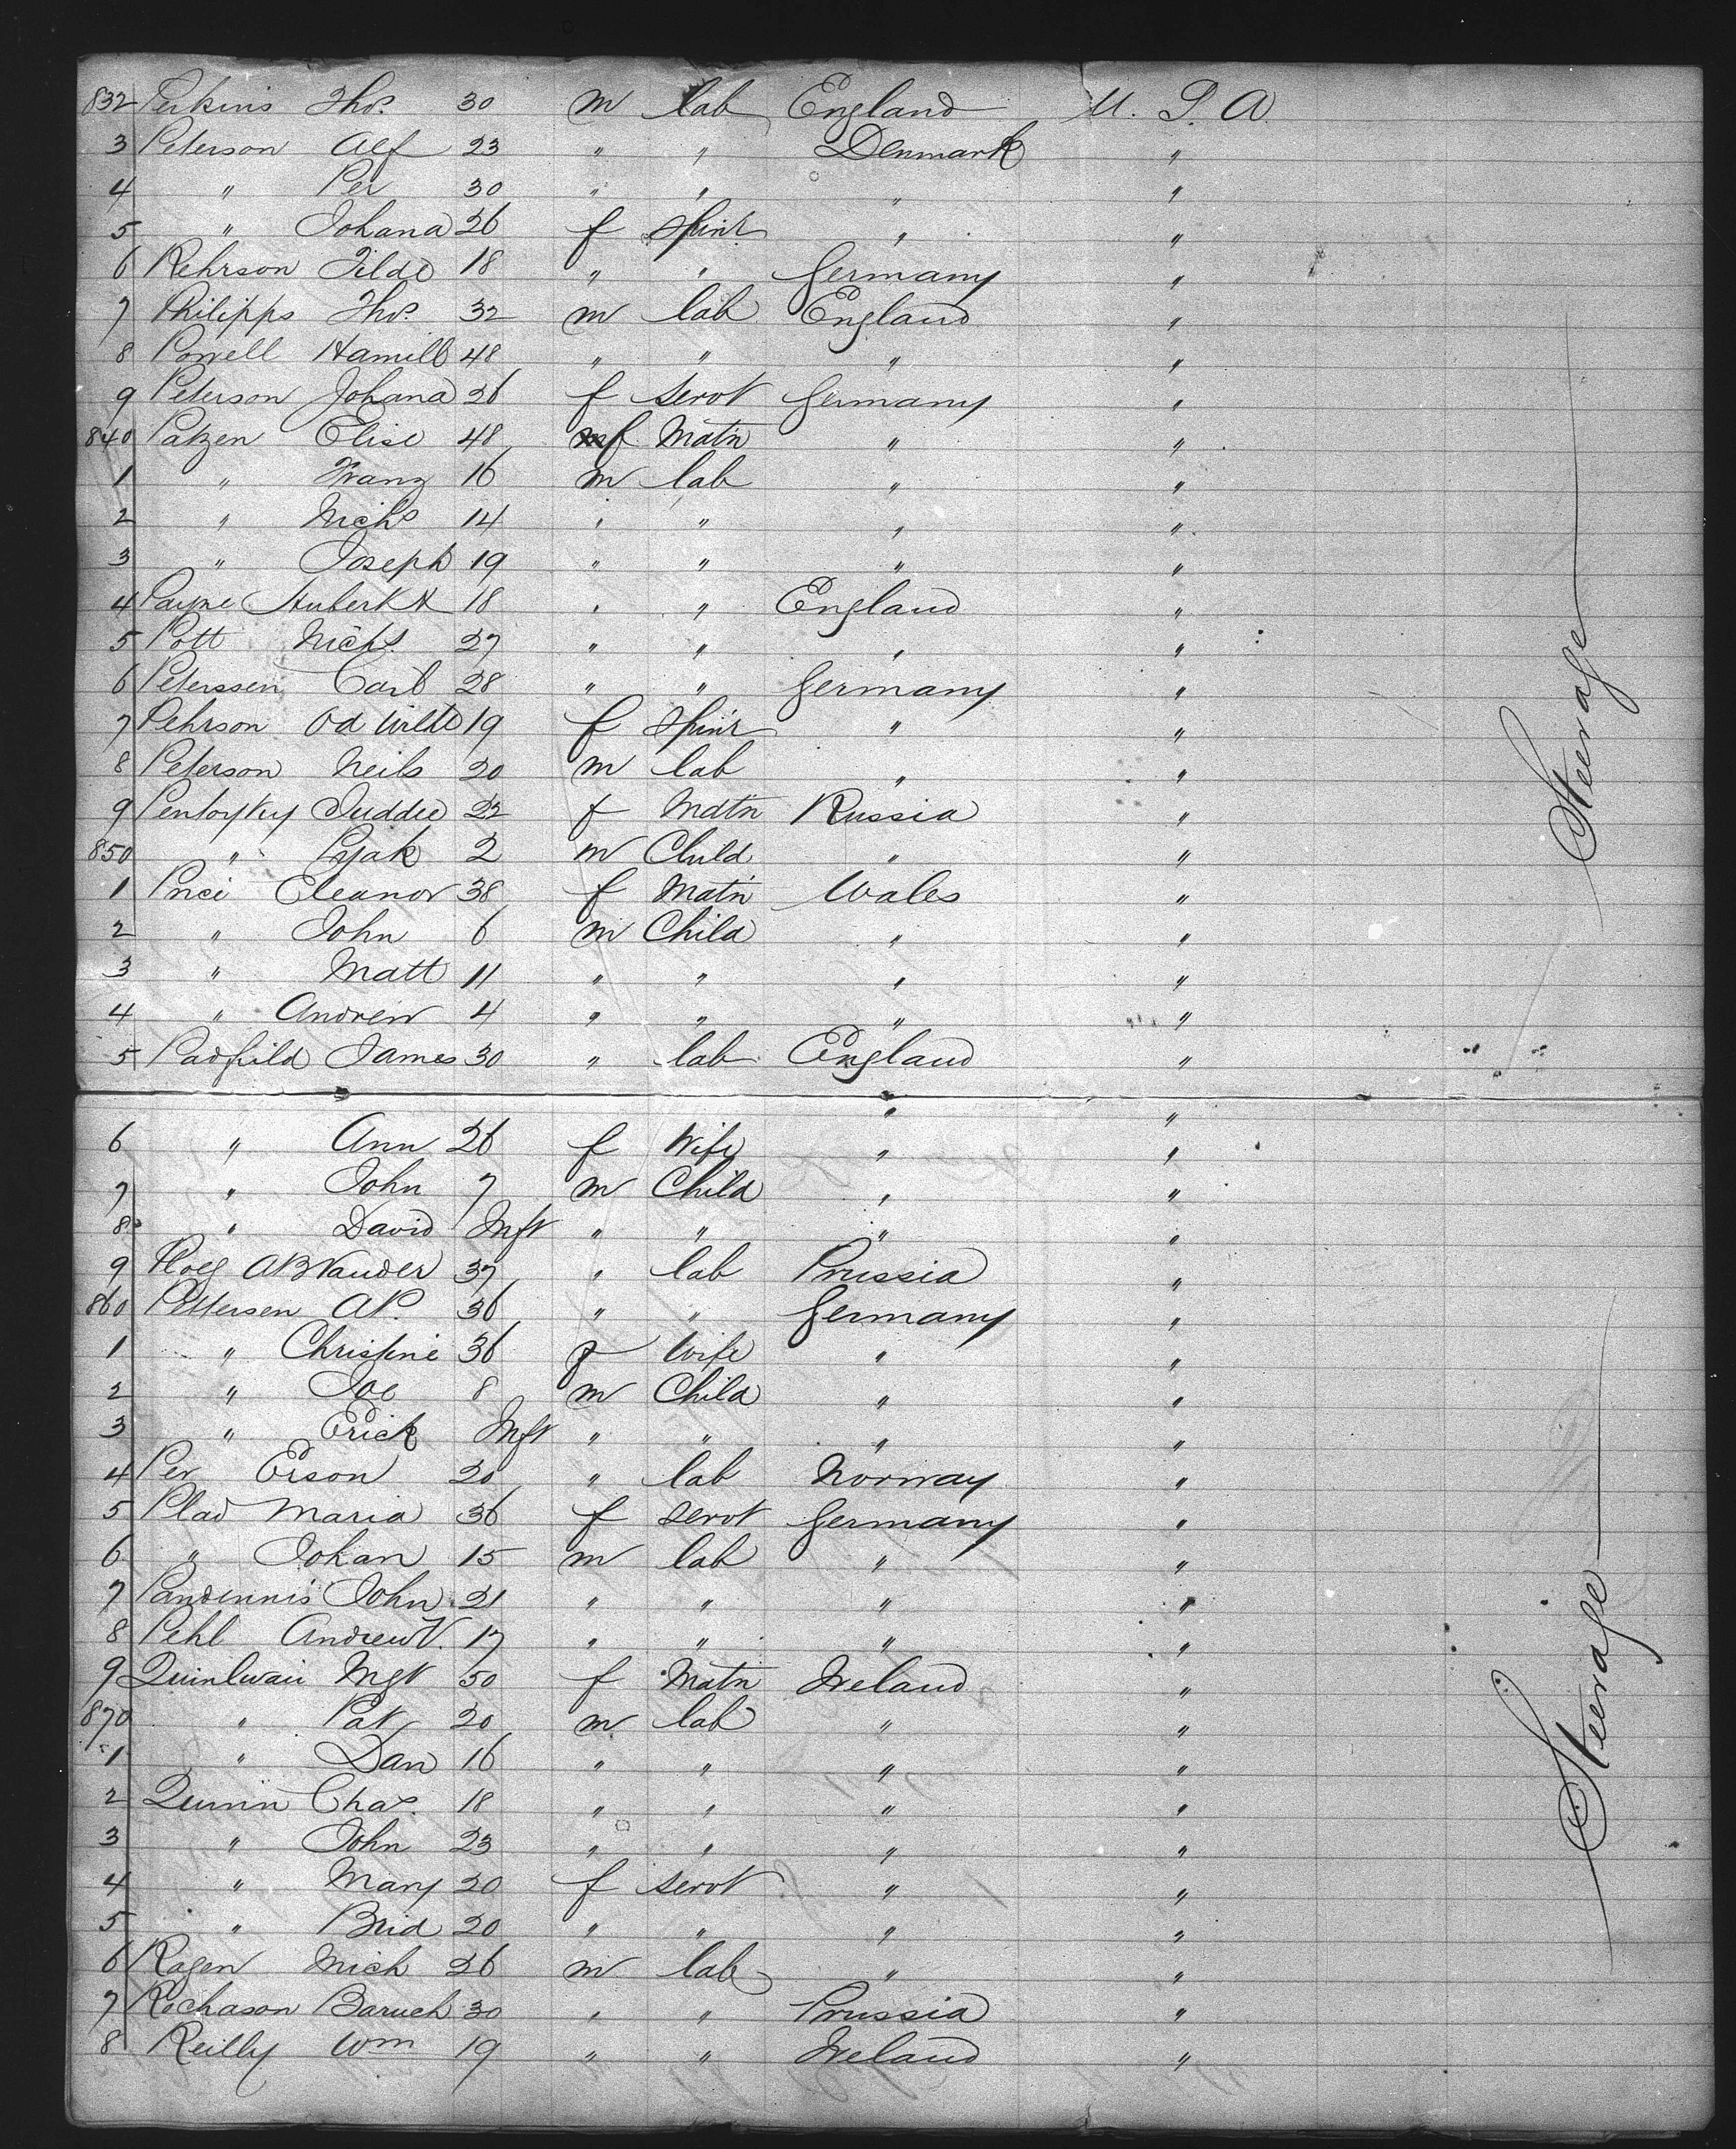 832 Perkins Thos. 30 m lab England U. S. A.
3 Peterson Alf 23 " " Denmark "
4 " Per 30 " " " "
5 " Johana 26 f Spinr " "
6 Pehrson Tilde 18 " " Germany "
7 Philipps Thos. 32 m lab England "
8 Powell Hamill 48 " " " "
9 Peterson Johana 26 f Servt Germany "
840 Patzen Elise 48 f Matn " "
1 " Franz 16 m lab " "
2 " Nichs 14 " " " "
3 " Joseph 19 " " " "
4 Payne Hubert H 18 " " England "
5 Pott Nichs 27 " " " "
6 Peterssen Carl 28 " " Germany "
7 Pehrson 19 f Spinr " "
8 Peterson Neils 20 m lab " "
9 22 f Matn Russia "
850 " 2 m Child " "
1 Price Eleanor 38 f Matn Wales "
2 " John 6 m Child " "
3 " Matt 11 " " " "
4 " Andrew 4 " " " "
5 Padfield James 30 " lab England "
" "
6 " Ann 26 f Wife " "
7 " John 7 m Child " "
8 " David Inft " " " "
9 37 " lab Prussia "
860 Pettersen A P. 36 " " Germany "
1 " Christine 36 f Wife " "
2 " Joe 8 m Child " "
3 " Erick Inft " " " "
4 Per Erson 20 " lab Norway "
5 Plad Maria 36 f Servt Germany "
6 " Johan 15 m lab " "
7 Pandennis John 21 " " " "
8 Pehl Andrew V. 17 " " " "
9 Quinlivan Mgt 50 f Matn Ireland "
870 " Pat 20 m lab " "
1 " Dan 16 " " " "
2 Quinn Chas. 18 " " " "
3 " John 23 " " " "
4 " Mary 20 f Servt " "
5 " Brid 20 " " " "
6 Ragen Mich 26 m lab " "
7 Rochason Baruch 30 " " Prussia "
8 Reilly Wm 19 " " Ireland "
Steerage
Steerage